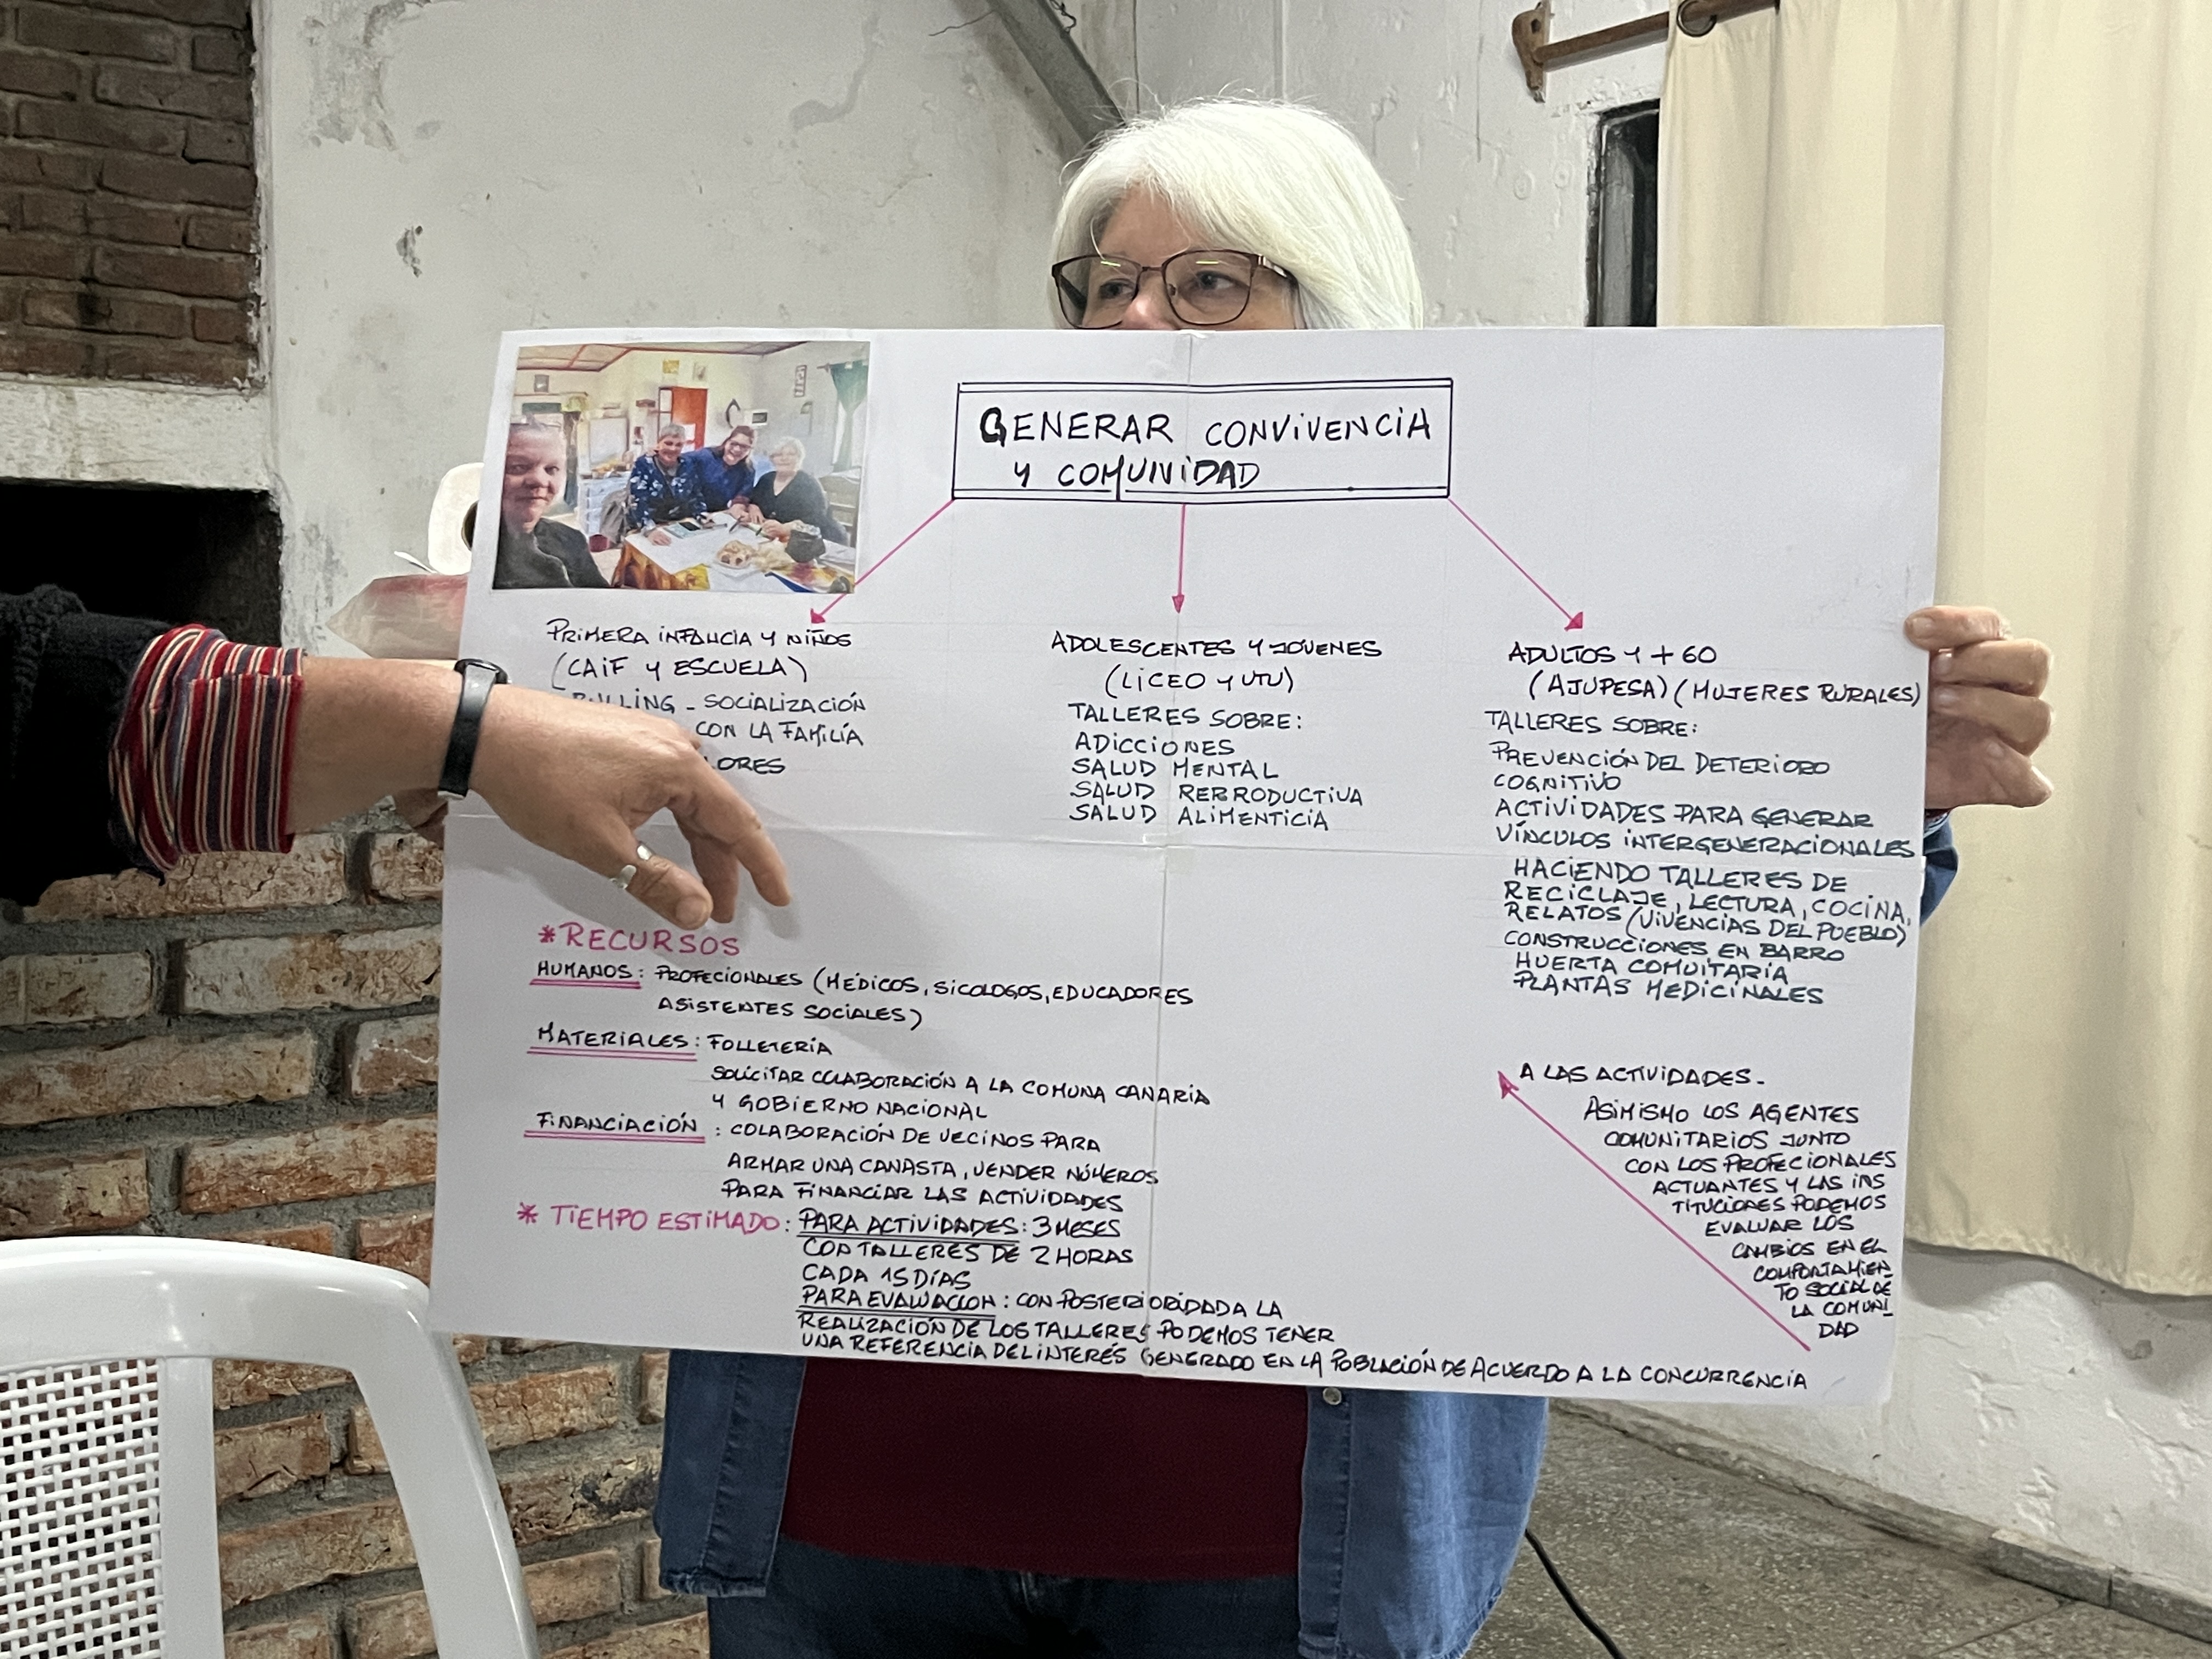 GENERAR CONVIVENCIA
Y COMUNIDAD
PRIMERA INFANCIA Y NIÑOS
(CAIF Y ESCUELA)
SOCIALIZACIÓN
CON LA FAMILIA
ADOLESCENTES Y JÓVENES
(LICEO Y UTU)
TALLERES SOBRE:
ADICCIONES
SALUD MENTAL
SALUD RERRODUCTIVA
SALUD ALIMENTICIA
ADULTOS Y + 60
(AJUPESA) (MUJERES RURALES)
TALLERES SOBRE:
PREVENCIÓN DEL DETERIORO
COGNITIVO
ACTIVIDADES PARA GENERAR
VÍNCULOS INTERGENERACIONALES
HACIENDO TALLERES DE
RECICLAJE, LECTURA, COCINA,
RELATOS (VIVENCIAS DEL PUEBLO)
CONSTRUCCIONES EN BARRO
HUERTA COMUITARIA
PLANTAS MEDICINALES
*RECURSOS
HUMANOS: PROFECIONALES (MÉDICOS, SICOLOGOS, EDUCADORES
ASISTENTES SOCIALES)
MATERIALES: FOLLETERIA
SOLICITAR COLABORACIÓN A LA COMUNA CANARIA
Y GOBIERNO NACIONAL
FINANCIACIÓN: COLABORACIÓN DE VECINOS PARA
ARMAR UNA CANASTA, VENDER NÚMEROS
PARA FINANCIAR LAS ACTIVIDADES
* TIEMPO ESTIMADO: PARA ACTIVIDADES: 3 MESES
CON TALLERES DE 2 HORAS
CADA 15 DÍAS
PARA EVALUACION: CON POSTERIORIDAD A LA
REALIZACIÓN DE LOS TALLERES PODEMOS TENER
UNA REFERENCIA DEL INTERÉS GENERADO EN LA POBLACIÓN DE ACUERDO A LA CONCURRENCIA
A LAS ACTIVIDADES.
ASIMISMO LOS AGENTES
COMUNITARIOS JUNTO
CON LOS PROFECIONALES
ACTUANTES Y LAS INS
TITUCIONES PODEMOS
EVALUAR LOS
CAMBIOS EN EL
COMPORTAMIEN_
TO SOCIAL DE
LA COMUNI_
DAD